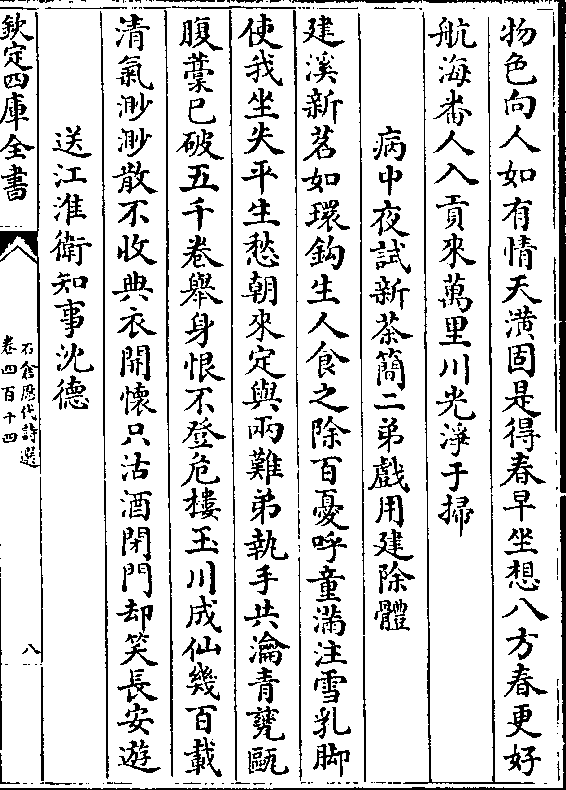 物色向人如有情天潢固是得春早坐想八方春更好
航海畨人入貢來萬里川光淨于掃
病中夜試新茶簡二弟戲用建除體
建溪新茗如環鈎生人食之除百憂呼童滿注雪乳脚
使我坐失平生愁朝來定與兩難弟執手共瀹青甆甌
腹藳已破五千卷舉身恨不登危樓玉川成仙幾百載
清氣渺渺散不收典衣開懷只沽酒閉門却笑長安遊
送江淮衛知事沈德
欽定四庫全書
石倉歷代詩選
卷四百十四
八